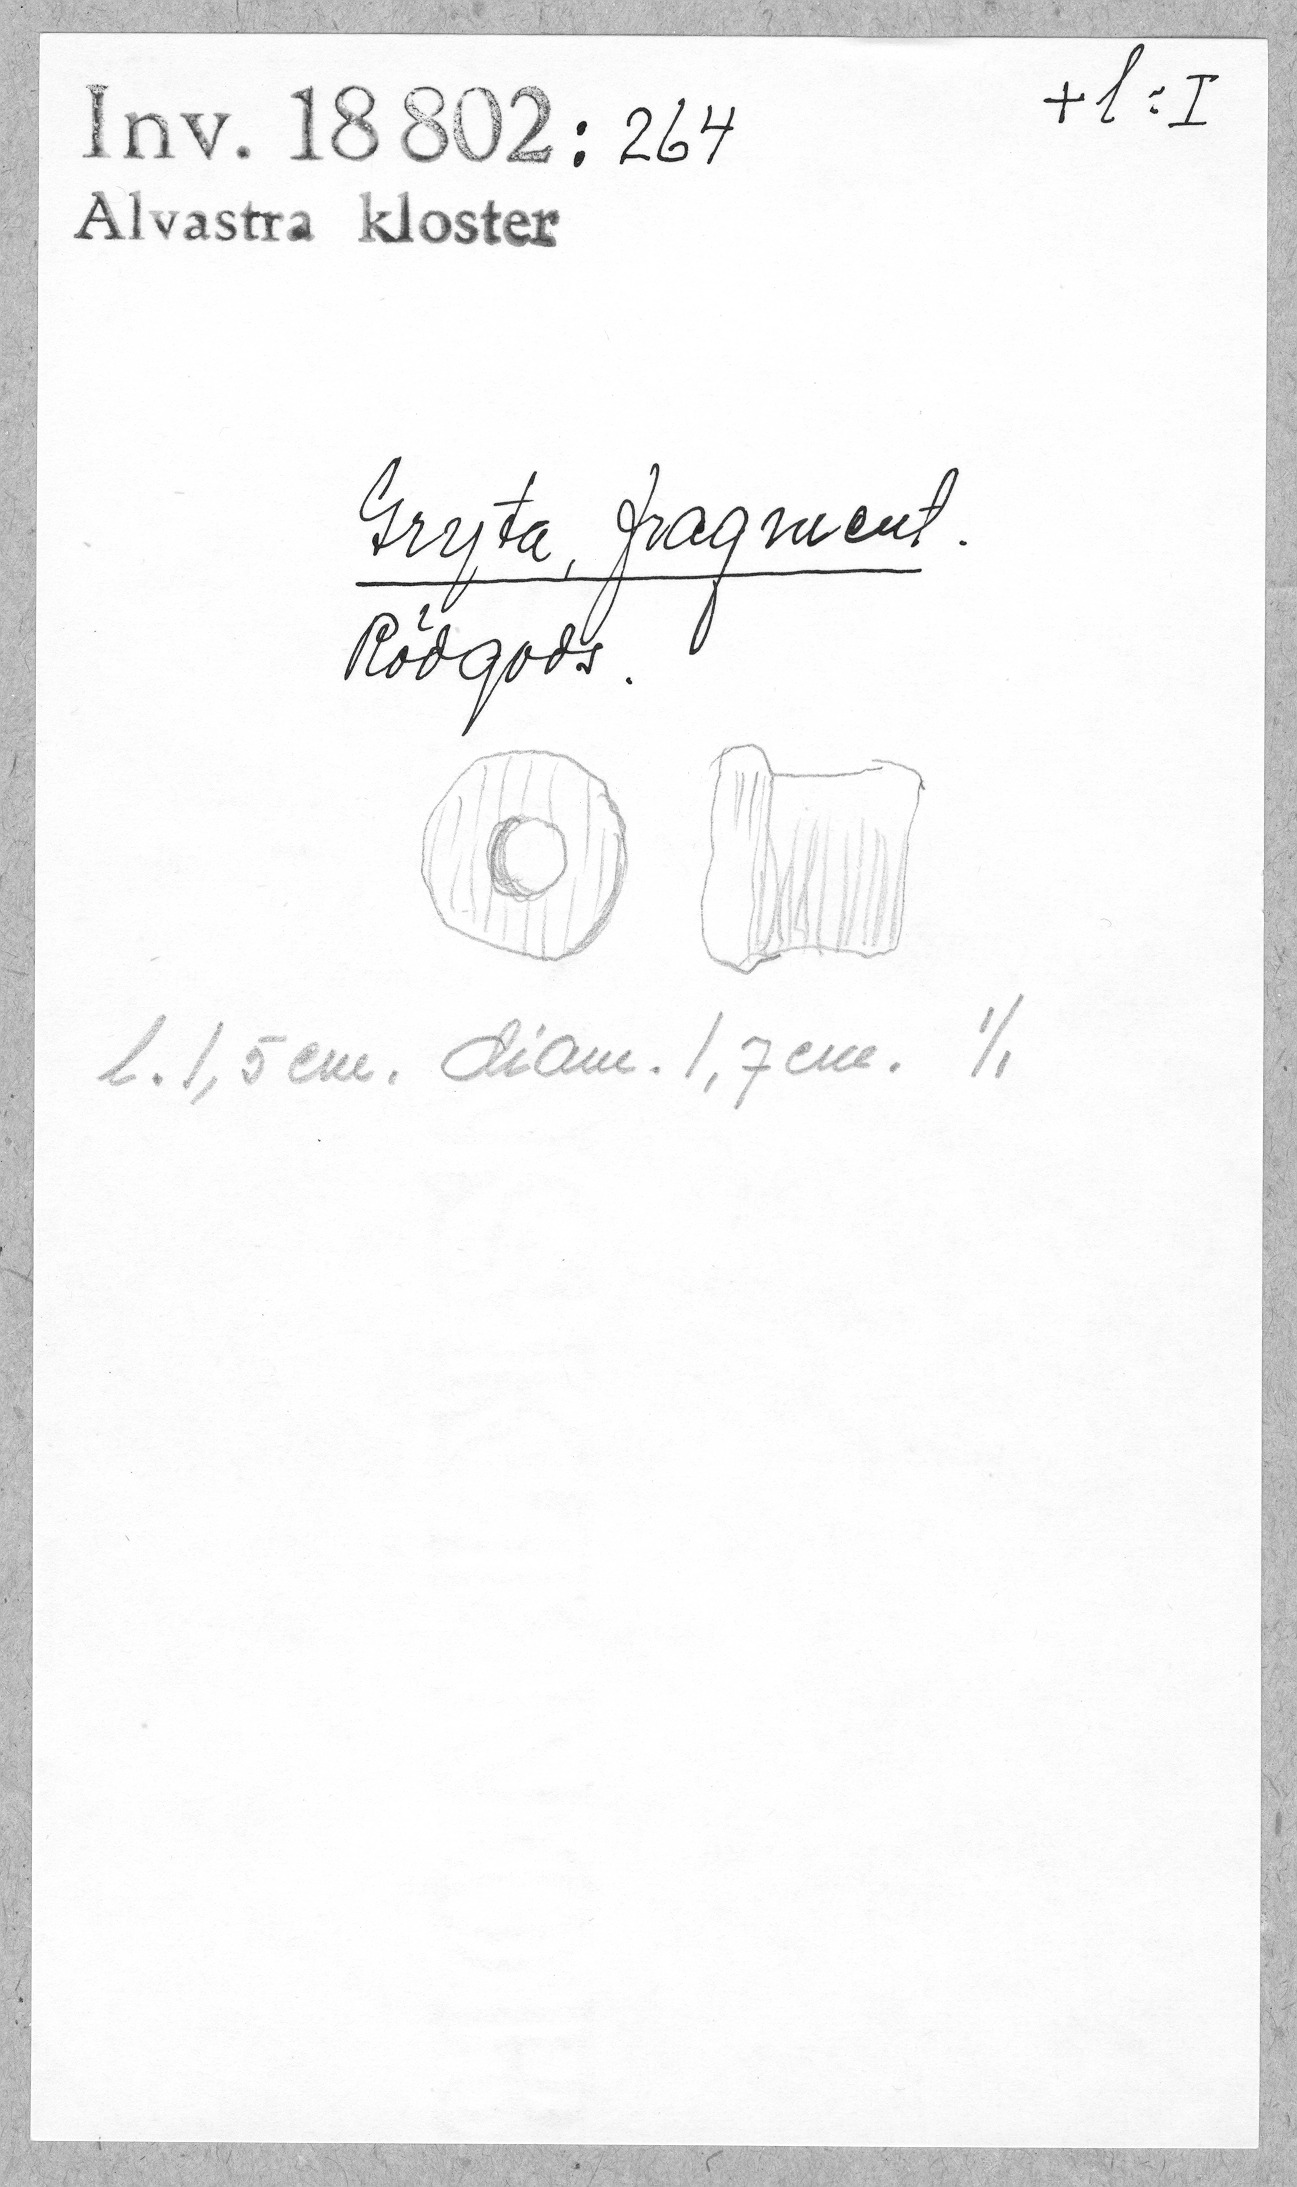 Inv. 18 802: 264
+l:I
Alvastra kloster
Gryta, fragment.
Rödgods.
l. 1,5 cm. diam. 1,7 cm. 1/1